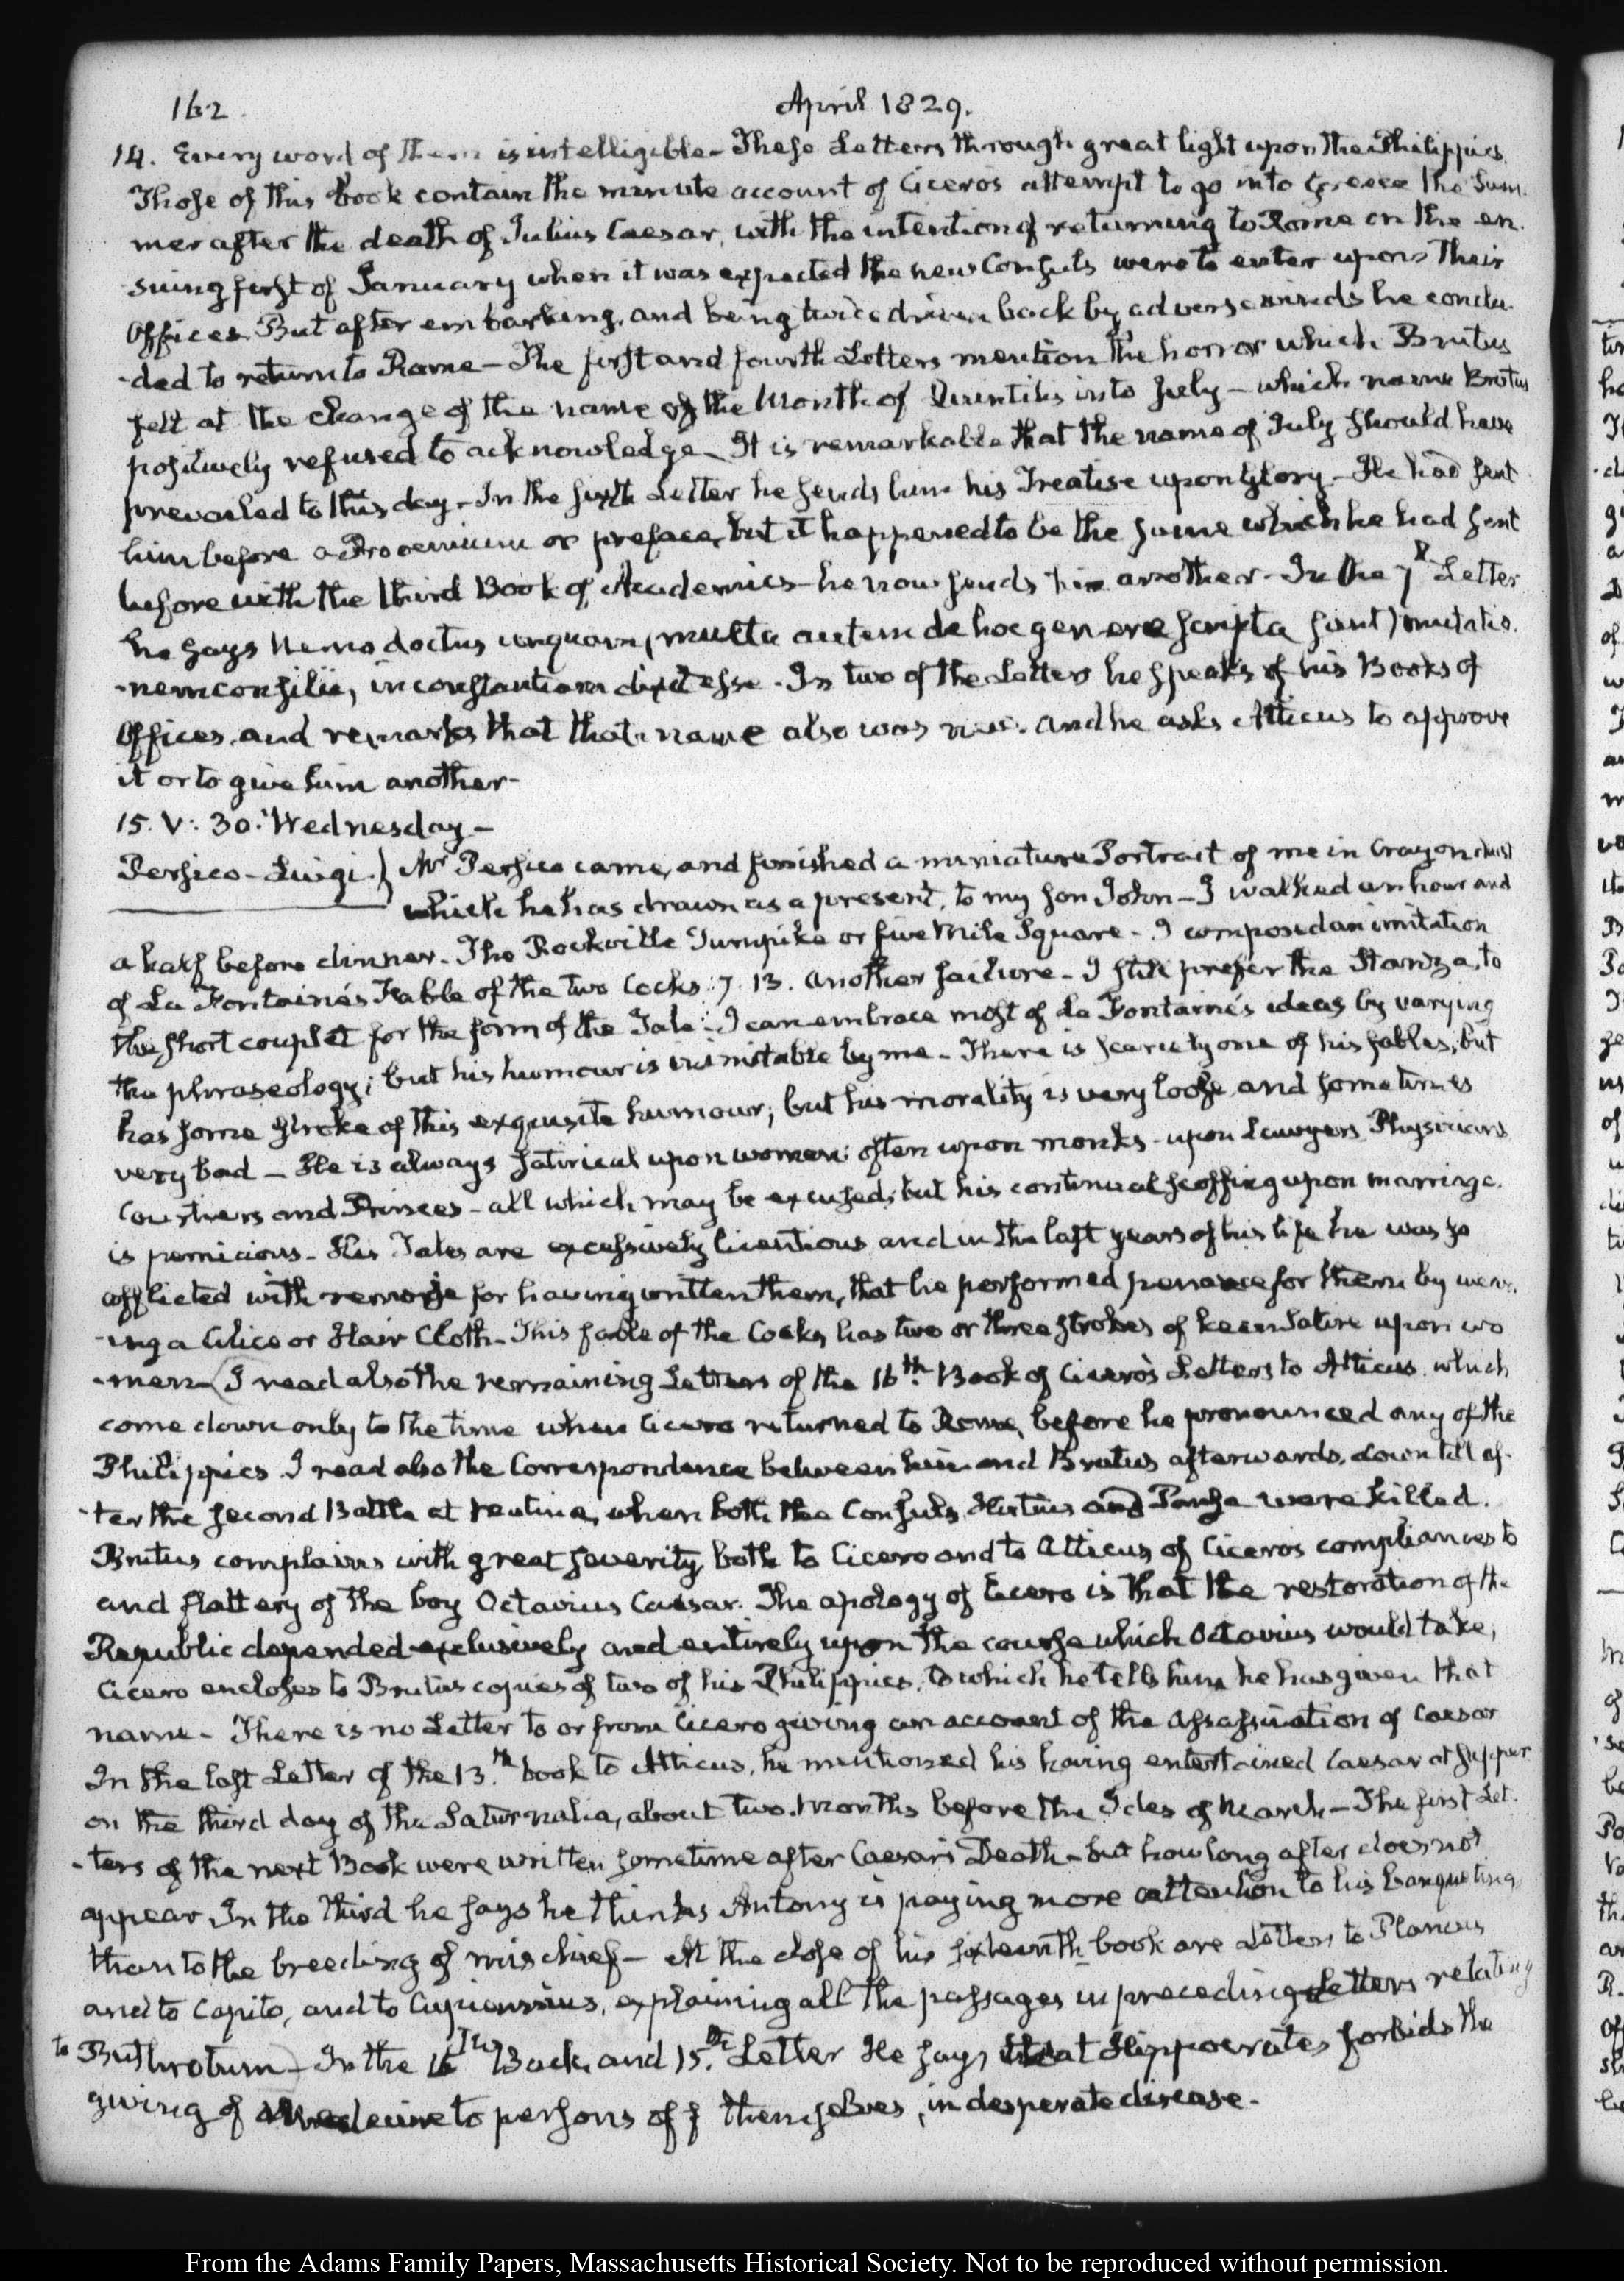 162
April 1829.
14. Every word of them is intelligible - These Letters through great light upon the Philippics.
Those of this book contain the minute account of Ciceros attempt to go into Greece the Sum-
mer after the death of Julius Caesar, with the intention of returning to Rome on the en-
suing first of January when it was expected the new Consuls were to enter upon their
Offices. But after embarking, and being twice driven back by adverse winds he conclu-
-ded to return to Rome - The first and fourth Letters mention the horror which Brutus
felt at the change of the name of the Month of Quintilis into July - which name Brutus
positively refused to acknowledge - It is remarkable that the name of July should have
prevailed to this day - In the sixth Letter he sends him his Treatise upon Glory - He had sent
him before a Prooemium or preface, but it happened to be the same which he had sent
before with the third Book of Academics - he now sends him another - In the 7th Letter
he says Nemo doctus unquam (multa autem de hoc genere scripta sunt) mutatio-
-nem consilii, inconstantiam dixit esse - In two of the Letters he speaks of his Books of
Offices, and remarks that that name also was new. and he asks Atticus to approve
it or to give him another -
15. V: 30. Wednesday -
Persico - Luigi. } Mr Persico came, and finished a miniature Portrait of me in Crayon
which he has drawn as a present, to my son John - I walked an hour and
a half before dinner - The Rockville Turnpike or five Mile Square - I composed an imitation
of La Fontaine's Fable of the two Cocks. 7. 13. another failure - I still prefer the Stanza, to
the short couplet for the form of the Tale. I can embrace most of La Fontaine's ideas by varying
the phraseology; but his humour is inimitable by me - There is scarcely one of his fables, but
has some stroke of this exquisite humour; but his morality is very loose, and sometimes
very bad - He is always satirical upon women: often upon monks - upon Lawyers, Physicians
Courtiers and Princes - all which may be excused; but his continual scoffing upon marriage.
is pernicious - His Tales are excessively licentious, and in the last years of his life he was so
afflicted with remorse for having written them, that he performed penance for them by wear-
-ing a Cilice or Hair Cloth - This fable of the Cocks has two or three strokes of keen Satire upon wo
-men - (I read also the remaining Letters of the 16th. Book of Cicero's Letters to Atticus. which
come down only to the time when Cicero returned to Rome, before he pronounced any of the
Philippics. I read also the Correspondence between him and Brutus afterwards, down till af-
-ter the second Battle at Mutina, when both the Consuls, Hirtius and Pansa were killed.
Brutus complains with great severity both to Cicero and to Atticus of Ciceros compliances to
and flattery of the boy Octavius Caesar. The apology of Cicero is that the restoration of the
Republic depended exclusively and entirely upon the course which Octavius would take,
Cicero encloses to Brutus copies of two of his Philippics, to which he tells him he has given that
name - There is no Letter to or from Cicero giving an account of the assassination of Caesar
In the last Letter of the 13.th book to Atticus, he mentioned his having entertained Caesar at supper
on the third day of the Saturnalia, about two months before the Ides of March - The first Let-
-ters of the next Book were written sometime after Caesar's Death - but how long after does not
appear. In the third he says he thinks Antony is paying more attention to his banqueting
than to the breeding of mischief - At the close of his sixteenth book are Letters to Plancus
and to Capito, and to Cupiennius, explaining all the passages in preceding Letters relating
to Buthrotum) - In the 16th Book, and 15.th Letter He says that Hippocrates forbids the
giving of Medecine to persons of themselves, in desperate disease -
From the Adams Family Papers, Massachusetts Historical Society. Not to be reproduced without permission.